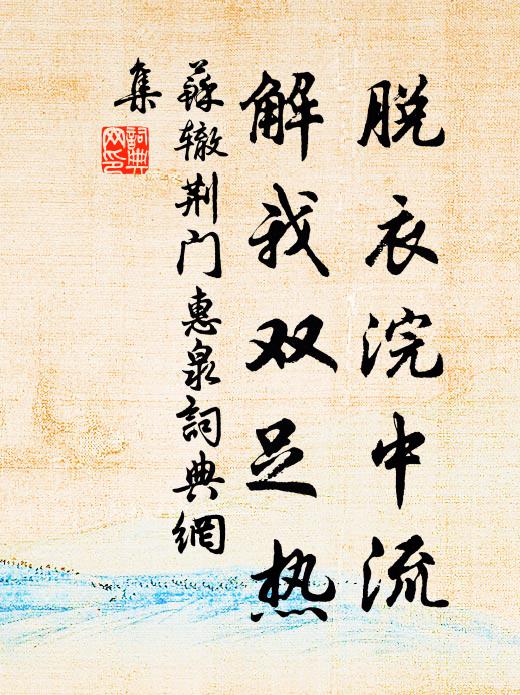 脱衣浣中流
解我双足热
苏辙荆门惠泉詞典網
集
詞典网印